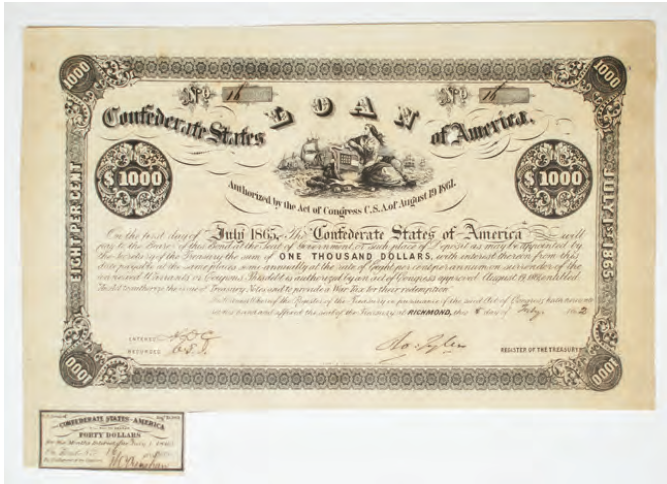 1000
1000
No 16
No 16
Confederate States LOAN of America,
$1000
$1000
Authorized by the Act of Congress C.S.A of August 19 1861.
EIGHT PER CENT
JULY 1ST 1865
On the first day of July 1865, The Confederate States of America will
pay to the Bearer of this Bond at the Seat of Government, or such place of Deposit as may be appointed by
the Secretary of the Treasury the sum of ONE THOUSAND DOLLARS, with interest thereon from this
date payable at the same place semi annually at the rate of Eight per cent per annum on surrender of the
annexed Warrants or Coupons. This debt is authorized by an act of Congress approved August 19, 1861 entitled
An Act to authorize the issue of Treasury Notes and to provide a War Tax for their redemption
In Witness Whereof the Register of the Treasury in pursuance of the said Act of Congress hath hereunto
set his hand and affixed the seal of the Treasury at RICHMOND, this 8 day of Feby. 1862
ENTERED
RECORDED
Ro. Tyler
REGISTER OF THE TREASURY
1000
1000
CONFEDERATE STATES OF AMERICA
FORTY DOLLARS
For Six Months Interest due July 1
On Bond No. 16